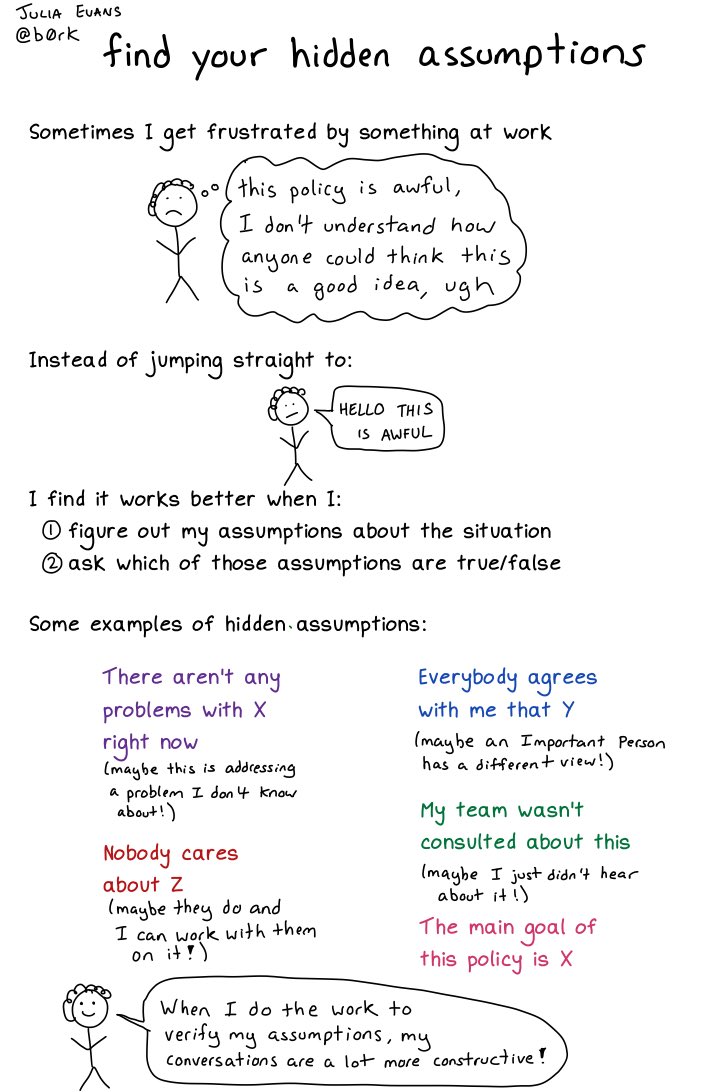 JULIA EVANS
@b0rk
find your hidden assumptions
Sometimes I get frustrated by something at work
this policy is awful,
I don't understand how
anyone could think this
is a good idea, ugh
Instead of jumping straight to:
HELLO THIS
IS AWFUL
I find it works better when I:
① figure out my assumptions about the situation
② ask which of those assumptions are true/false
Some examples of hidden assumptions:
There aren't any
problems with X
right now
(maybe this is addressing
a problem I don't know
about!)
Nobody cares
about Z
(maybe they do and
I can work with them
on it!)
Everybody agrees
with me that Y
(maybe an Important Person
has a different view!)
My team wasn't
consulted about this
(maybe I just didn't hear
about it!)
The main goal of
this policy is X
When I do the work to
verify my assumptions, my
conversations are a lot more constructive!